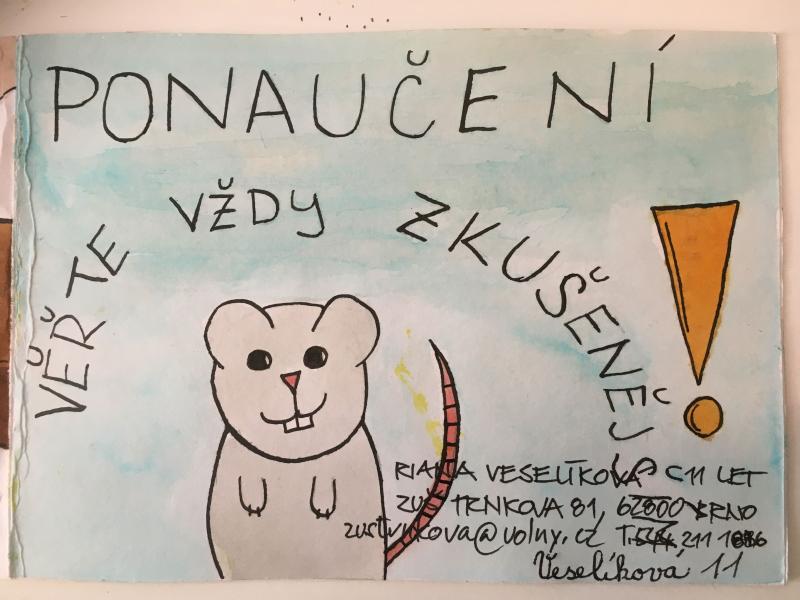 PONAUČENÍ
VĚŘTE VŽDY ZKUŠENĚJŠ!
VESELÍKOVÁ C11 LET
ZUŠ TRNKOVA 81, 62800 BRNO
zustrnkova@volny.cz 211
Veselíková 11